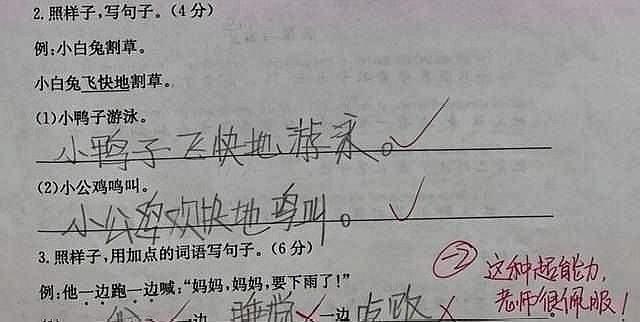 2.照样子,写句子。(4分)
例:小白兔割草。
小白兔飞快地割草。
(1)小鸭子游泳。
小鸭子飞快地游泳。
(2)小公鸡鸣叫。
小公鸡欢快地鸣叫。
3.照样子,用加点的词语写句子。(6分)
例:他一边跑一边喊:“妈妈,妈妈,要下雨了!”
-2 这种超能力,
老师很佩服!
一边 睡觉 一边 走路